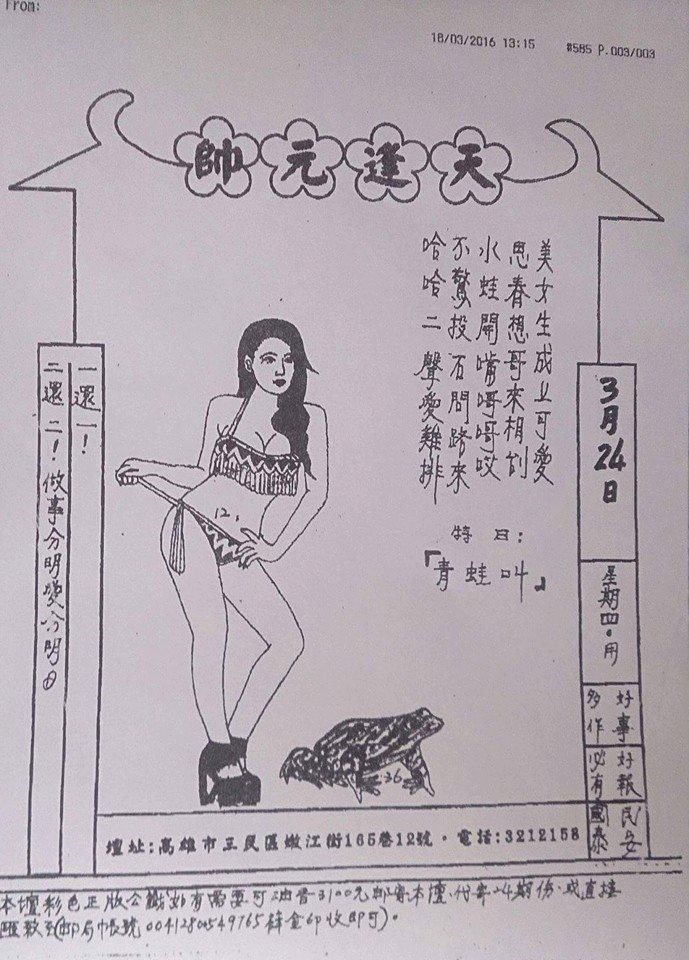 From:
18/03/2016 13:15 #585 P.003/003
天逢元帥
美女生成上可愛
思春想哥來相
水蛙開嘴哎
不驚投石問路來
哈哈二聲愛難排
特日:
「青蛙叫」
3月24日
星期四.用
好事
多作
好報
必有
民安
國泰
一還一!
二還二!做事分明愛分明
12
36
壇址:高雄市三民區嫩江街165巷12號・電話:3212158
本壇彩色正版公籤如有需要可油音3100元邮寄本壇.代寄24期份.或直接
匯款至(邮局帳號00412800549765 收即可)。